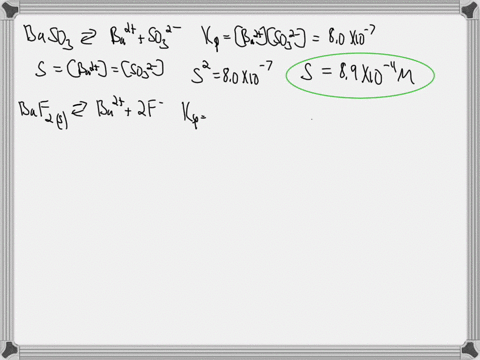 BaSO₃ ⇌ Ba²⁺ + SO₃²⁻ Kₛₚ = [Ba²⁺][SO₃²⁻] = 8.0 X10⁻⁷
S = [Ba²⁺] = [SO₃²⁻] S² = 8.0 X10⁻⁷ S = 8.9 X10⁻⁴ M
BaF₂(s) ⇌ Ba²⁺ + 2F⁻ Kₛₚ=